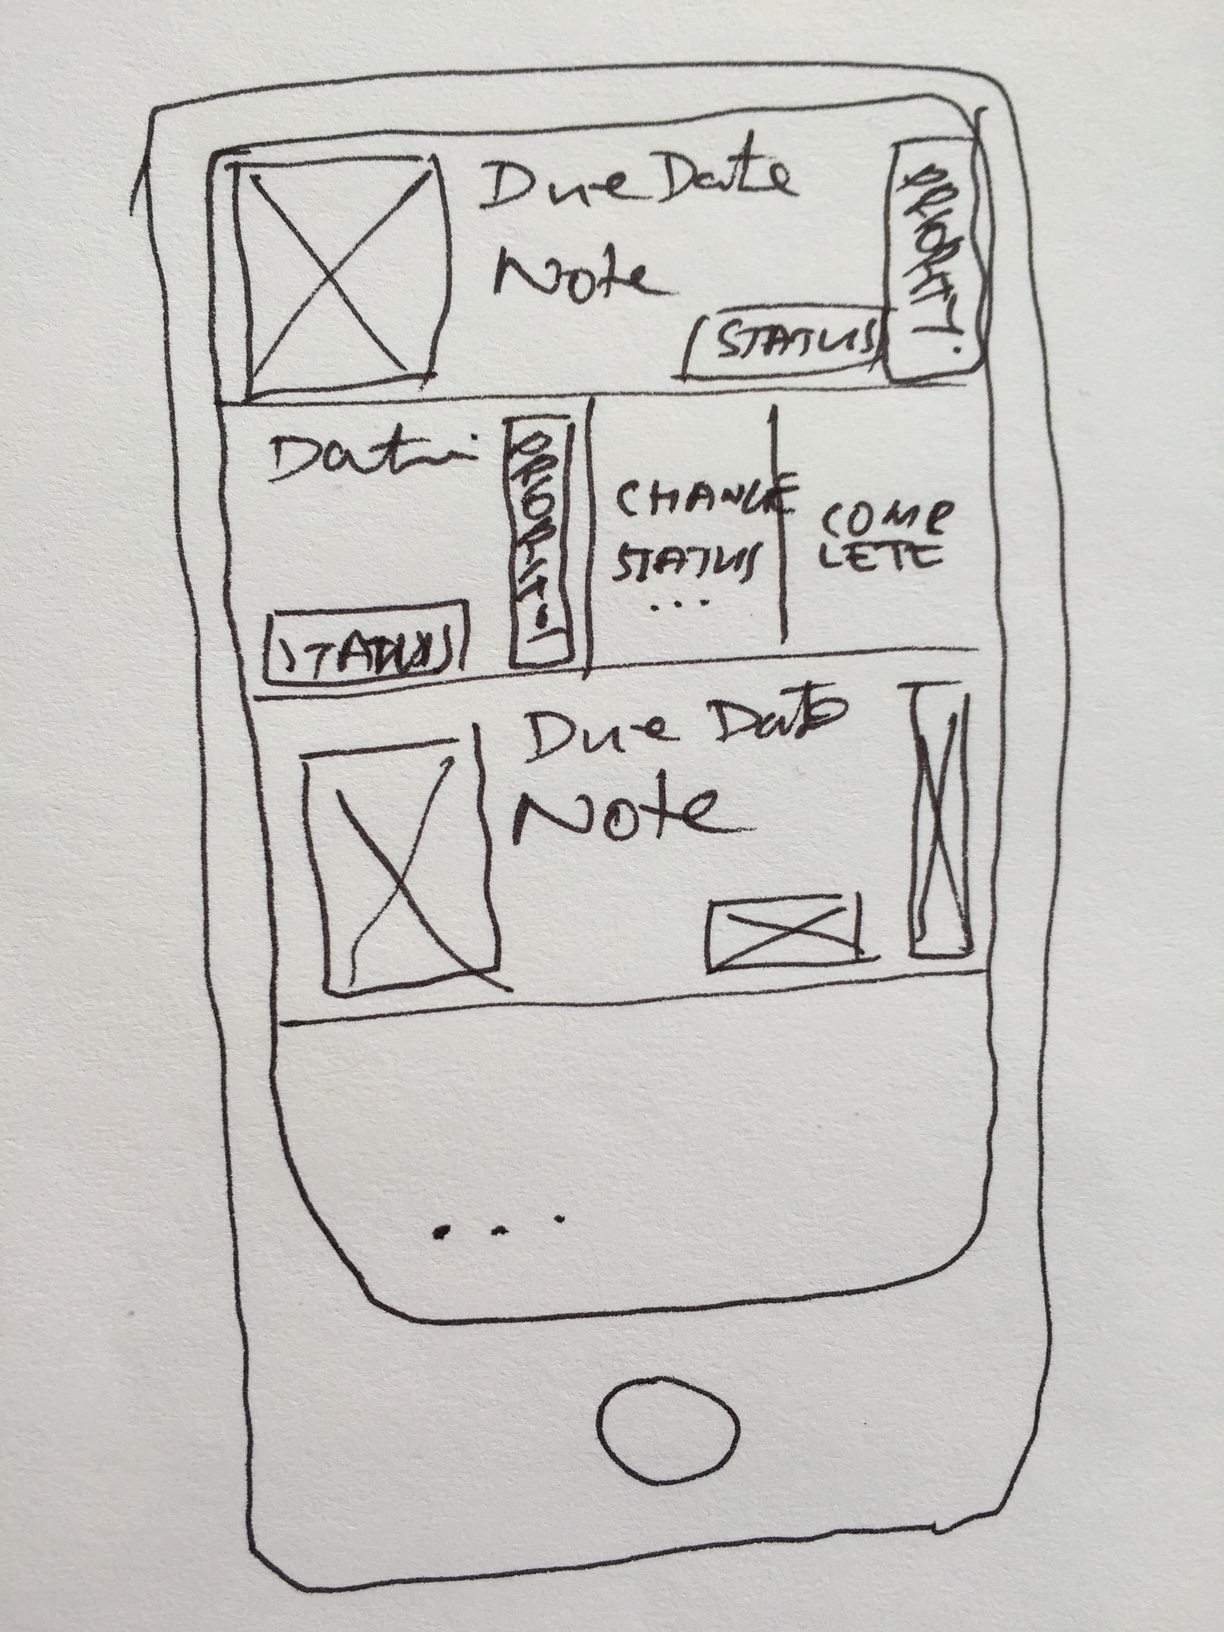 Due Date
Note
STATUS
PRIORITY.
Date
STATUS
PRIORITY
CHANGE
STATUS
...
COMP
LETE
Due Date
Note
...